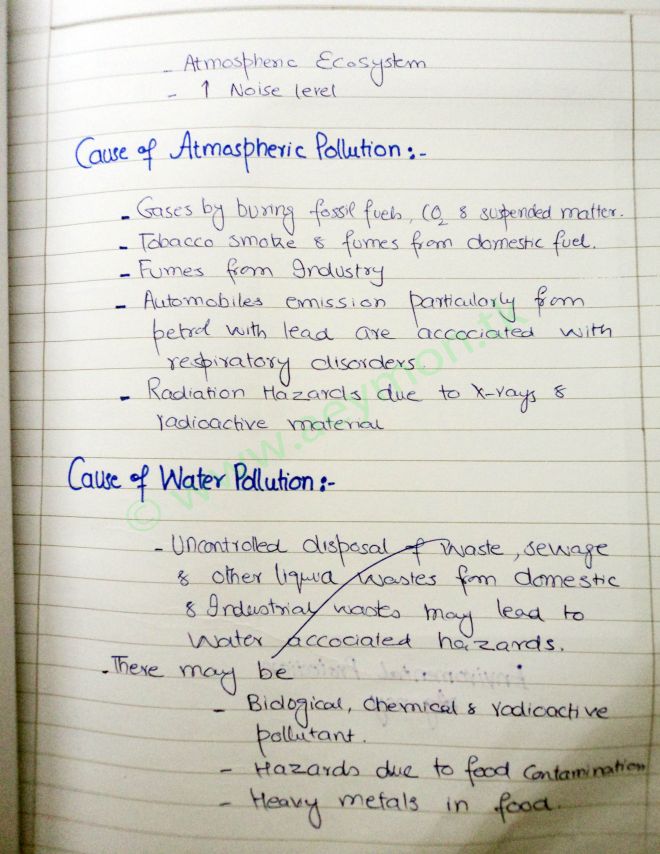 - Atmospheric Ecosystem
- ↑ Noise level
Cause of Atmospheric Pollution:-
- Gases by buring fossil fuels, CO2 & suspended matter.
- Tobacco smoke & fumes from domestic fuel.
- Fumes from Industry
- Automobiles emission particularly from
petrol with lead are accociated with
respiratory disorders.
- Radiation Hazards due to x-rays &
radioactive material
© www.aeymon.tk
Cause of Water Pollution:-
- Uncontrolled disposal of waste, sewage
& other liquid wastes from domestic
& Industrial wastes may lead to
Water accociated hazards.
- There may be
- Biological, chemical & radioactive
pollutant.
- Hazards due to food contamination
- Heavy metals in food.